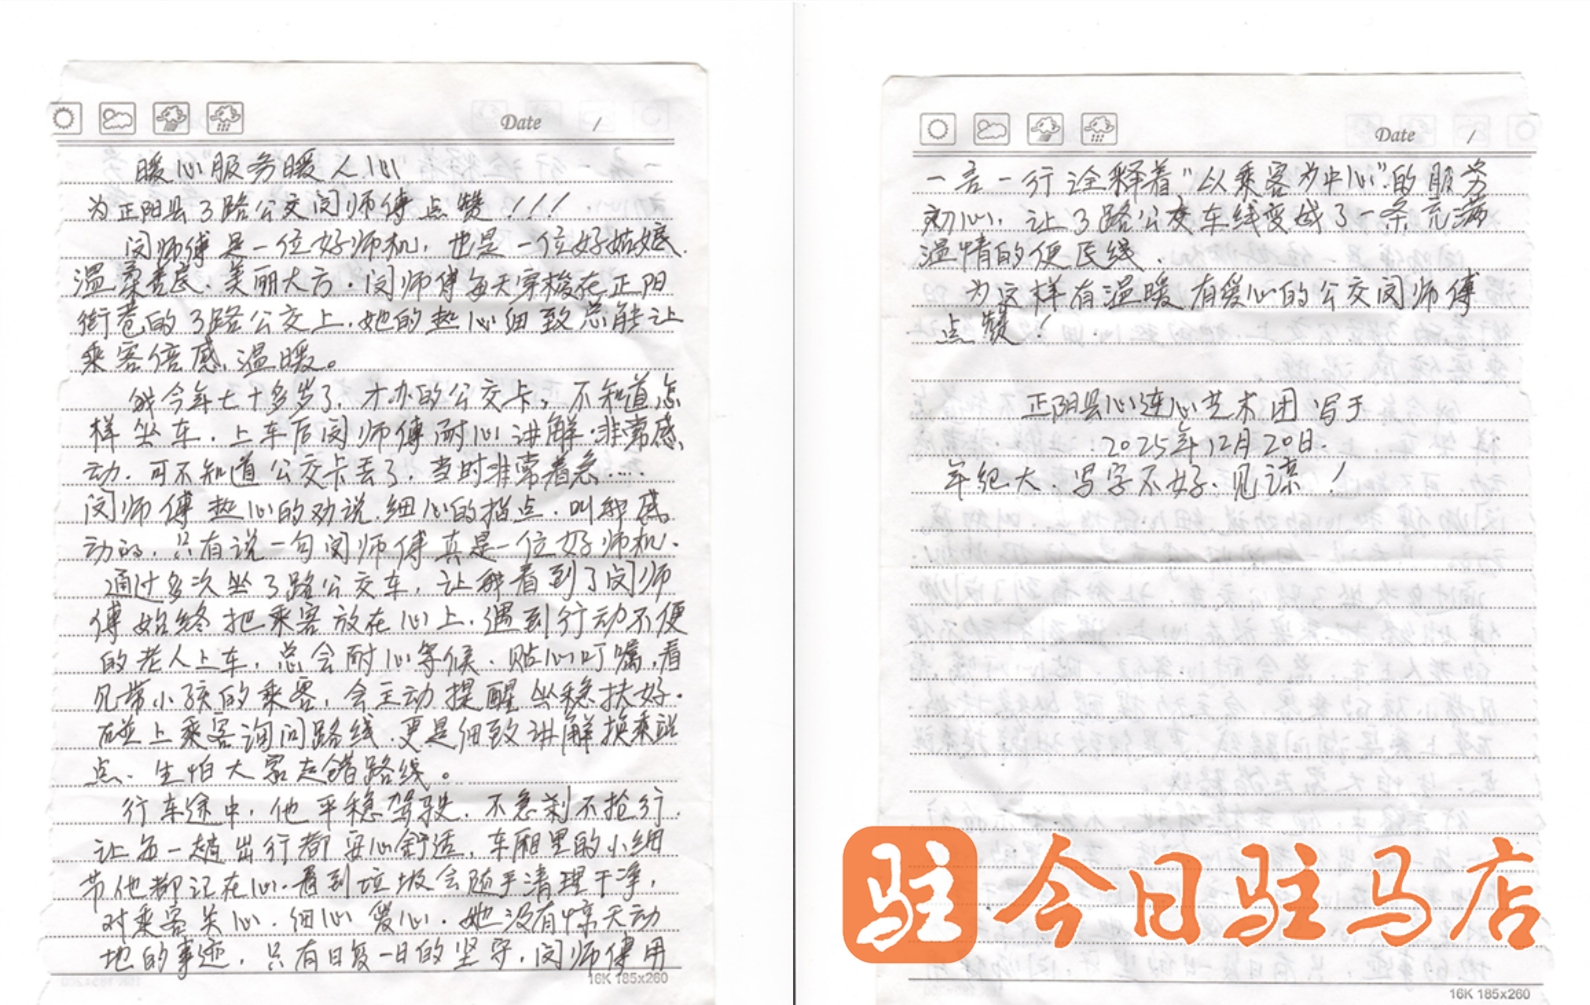 Date /
暖心服务暖人心
为正阳县3路公交闵师傅点赞！！！
闵师傅是一位好师机，也是一位好姑娘.
温柔贤惠、美丽大方.闵师傅每天穿梭在正阳
街巷的3路公交上.她的热心细致总能让
乘客倍感温暖。
我今年七十多岁了，才办的公交卡，不知道怎
样坐车.上车后闵师傅耐心讲解.非常感
动.可不知道公交卡丢了，当时非常着急……
闵师傅热心的劝说.细心的指点.叫我感
动的，只有说一句闵师傅真是一位好师机.
通过多次坐3路公交车，让我看到了闵师
傅始终把乘客放在心上.遇到行动不便
的老人上车，总会耐心等候、贴心叮嘱，看
见带小孩的乘客，会主动提醒坐稳扶好.
碰上乘客询问路线.更是细致讲解换乘站
点、生怕大家走错路线。
行车途中，他平稳驾驶.不急刹不抢行.
让每一趟出行都安心舒适，车厢里的小细
节他都记在心.看到垃圾会随手清理干净，
对乘客关心.细心爱心.她没有惊天动
地的事迹，只有日复一日的坚守，闵师傅用
16K 185x260
Date /
一言一行诠释着"以乘客为中心"的服务
初心，让3路公交车线变成了一条充满
温情的便民线.
为这样有温暖有爱心的公交闵师傅
点赞！
正阳县心连心艺术团写于
2025年12月20日.
年纪大.写字不好.见谅！
驻 今日驻马店
16K 185x260